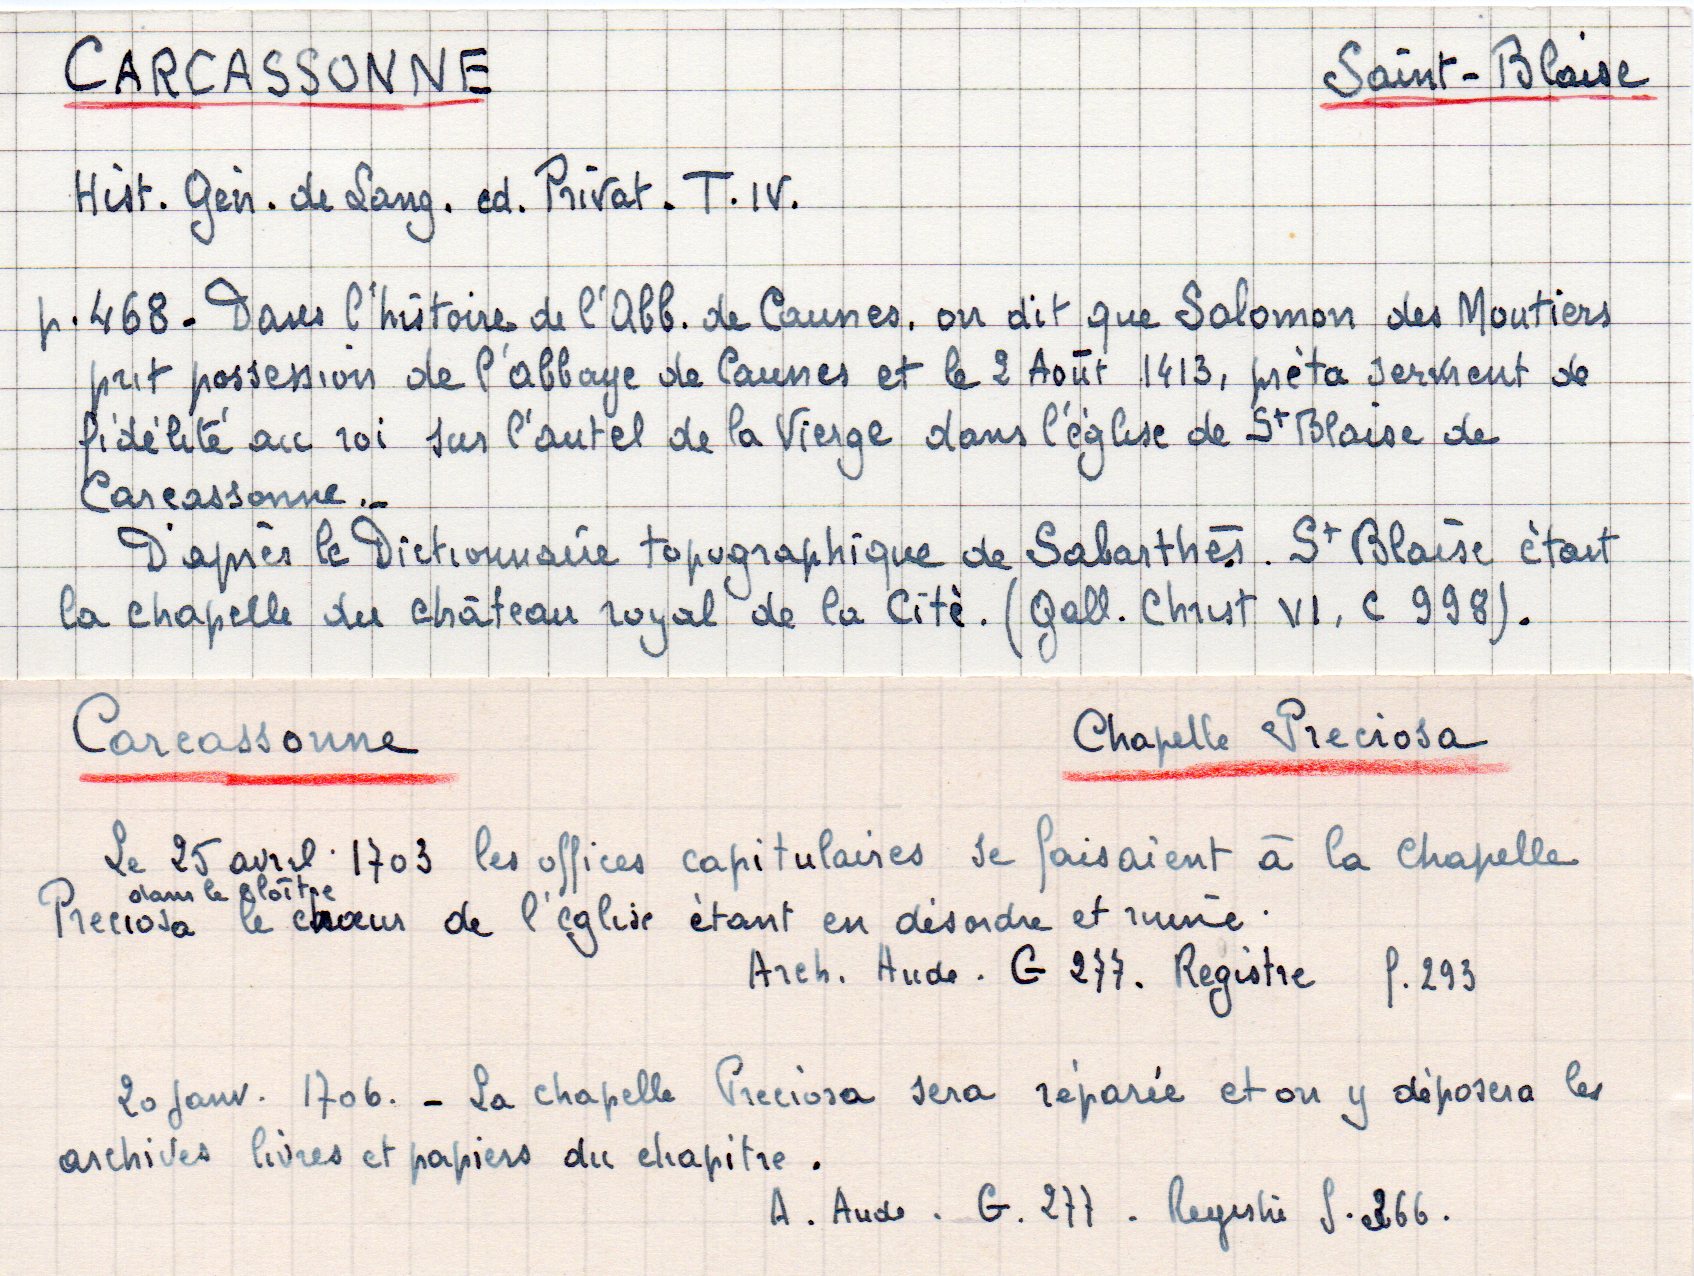 CARCASSONNE Saint-Blaise
Hist. Gén. de Lang. ed. Privat. T. IV.
p. 468 - Dans l'histoire de l'Abb. de Caunes, on dit que Salomon des Moutiers
prit possession de l'abbaye de Caunes et le 2 Août 1413, prêta serment de
fidélité au roi sur l'autel de la Vierge dans l'église de St Blaise de
Carcassonne.-
D'après le Dictionnaire topographique de Sabarthès. St Blaise était
la chapelle du château royal de la Cité. (Gall. Christ VI, C 998).
Carcassonne Chapelle Preciosa
Le 25 avril 1703 les offices capitulaires se faisaient à la chapelle
dans le cloître
Preciosa le chœur de l'église étant en désordre et ruiné.
Arch. Aude. G 277. Registre f. 293
20 janv. 1706. - La chapelle Preciosa sera réparée et on y déposera les
archives livres et papiers du chapitre.
A. Aude. G. 277. Registre f. 366.